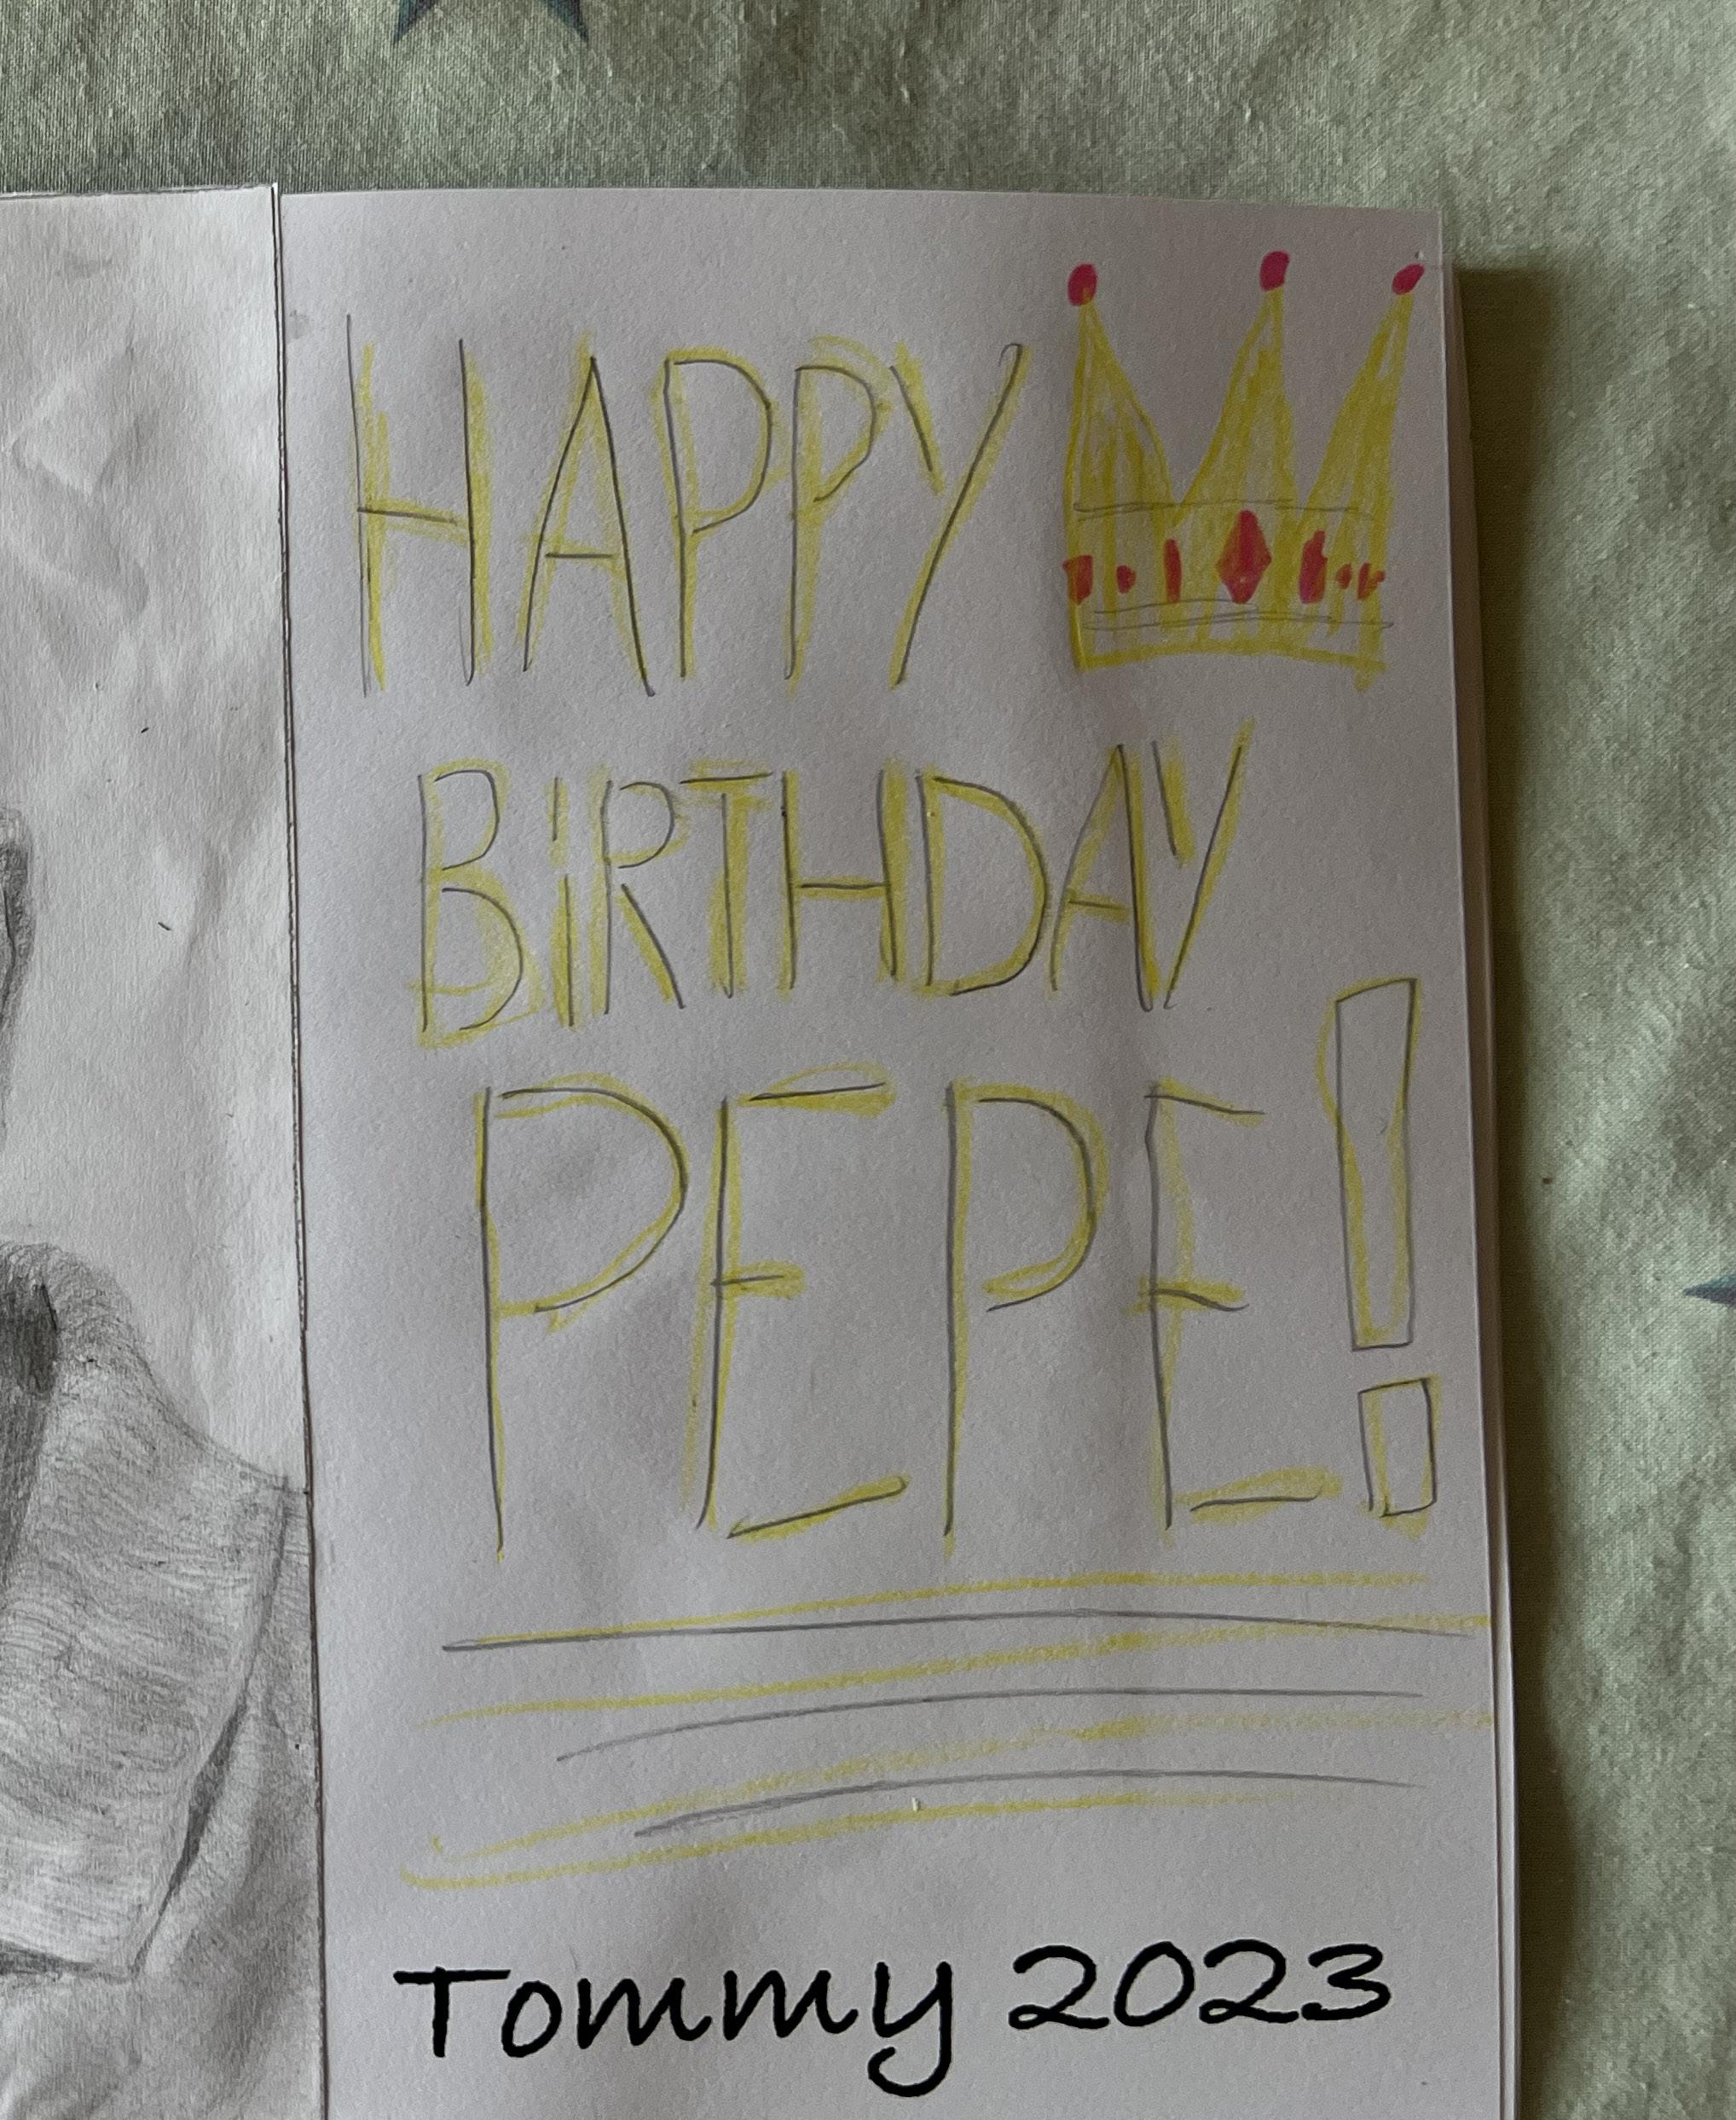 HAPPY
BIRTHDAY
PEPE!
Tommy 2023